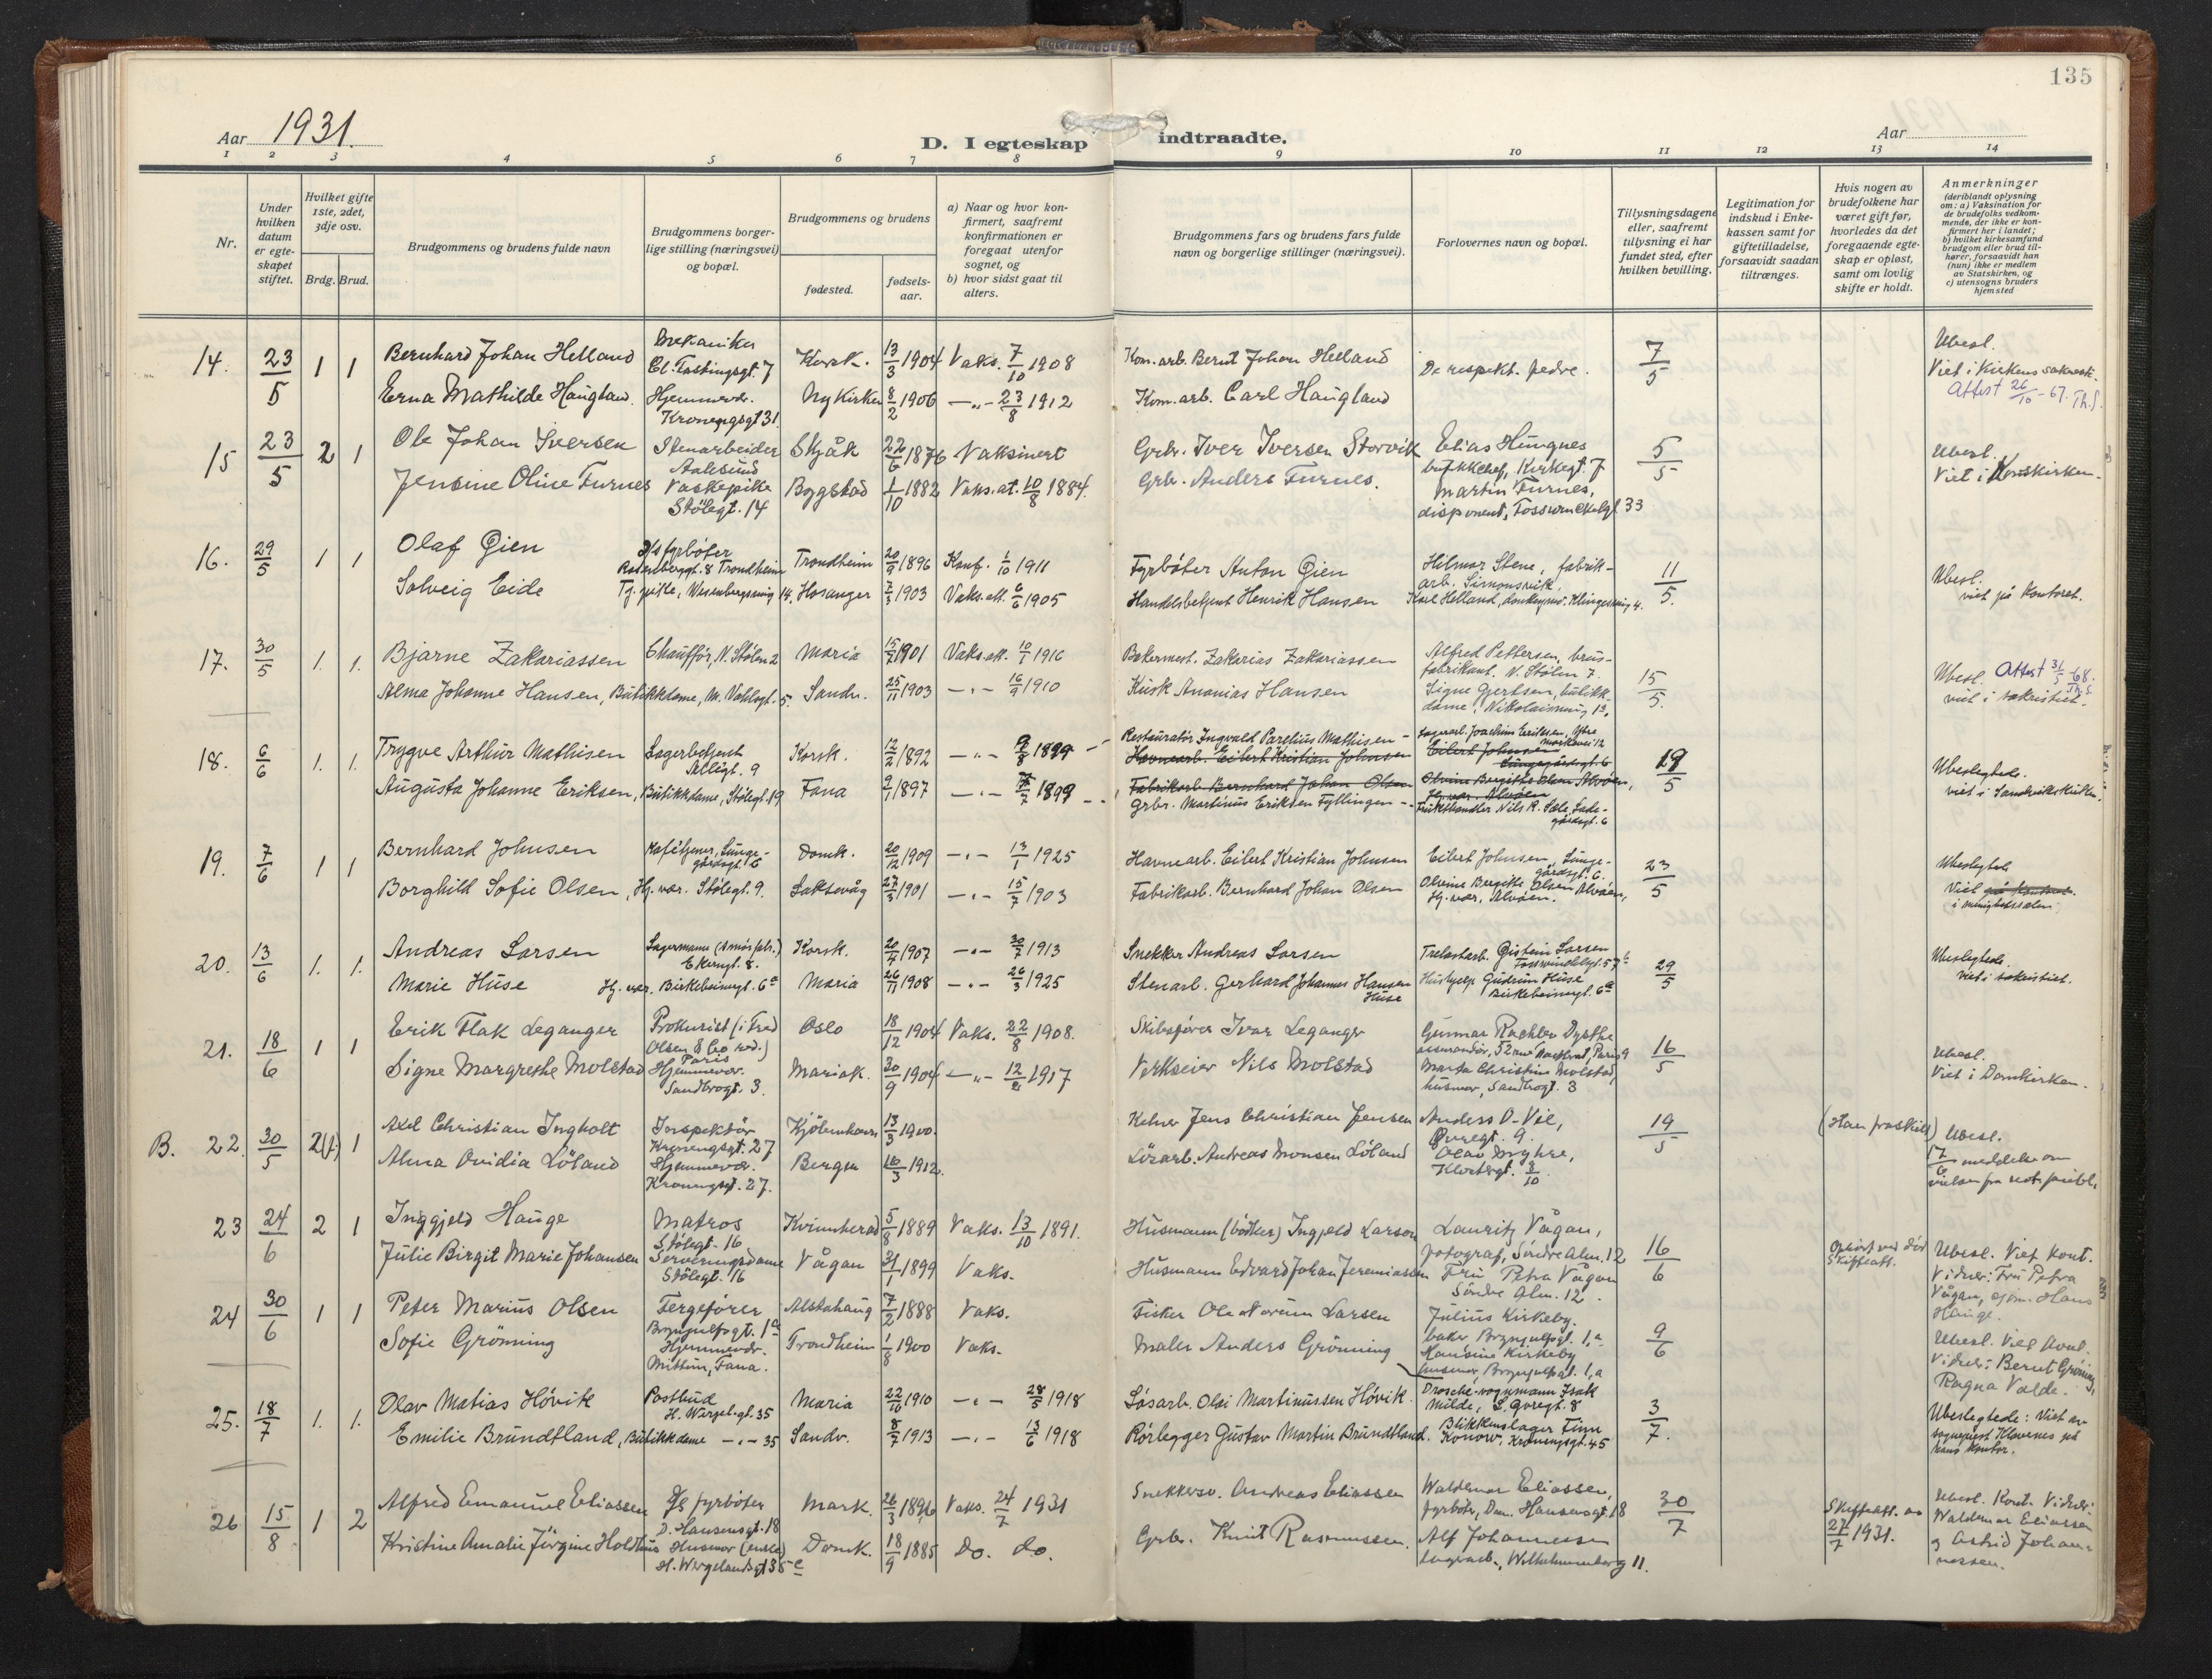 135
Aar 1931.
D. I egteskap indtraadte.
Aar
1 2 3 4 5 6 7 8 9 10 11 12 13 14
Nr.
Under hvilken datum er egteskapet stiftet.
Hvilket gifte 1ste, 2det, 3dje osv.
Brdg. Brud.
Brudgommens og brudens fulde navn
Brudgommens borgerlige stilling (næringsvei) og bopæl.
Brudgommens og brudens
fødested.
fødselsaar.
a) Naar og hvor konfirmert, saafremt konfirmationen er foregaat utenfor sognet, og
b) hvor sidst gaat til alters.
Brudgommens fars og brudens fars fulde navn og borgerlige stillinger (næringsvei).
Forlovernes navn og bopæl.
Tillysningsdagene eller, saafremt tillysning ei har fundet sted, efter hvilken bevilling.
Legitimation for indskud i Enkekassen samt for giftetilladelse, forsaavidt saadan tiltrænges.
Hvis nogen av brudefolkene har været gift før, hvorledes da det foregaaende egteskap er opløst, samt om lovlig skifte er holdt.
Anmerkninger
(deriblandt oplysning om: a) Vaksination for de brudefolks vedkommende, der ikke er konfirmert her i landet; b) hvilket kirkesamfund brudgom eller brud tilhører, forsaavidt han (hun) ikke er medlem av Statskirken, og c) utensogns bruders hjemsted
14. 23/5 1 1 Bernhard Johan Helland Mekaniker Korsk. 13/3 1904 Vaks. 7/10 1908 Kom. arb. Bernt Johan Helland De respekt. fedre. 7/5 Ubesl.
Viet i Kirkens sakresti.
Erna Mathilde Haugland Hjemmevær. Kroningsgt 31. Nykirken 8/2 1906 -"- 23/8 1912 Kom. arb. Carl Haugland Attest 26/10-67. Th.S.
15 23/5 2 1 Ole Johan Iversen Stenarbeider Aalesund Skjåk 22/6 1876 Vaksinert Grbr. Iver Iversen Storvik Elias Hungnes Kirkegt. 7 5/5 Ubesl.
Jensine Oline Furnes Vaskepike Stölegt. 14 Bygstad 1/10 1882 Vaks. at. 10/8 1884. Grb. Anders Furnes. Martin Furnes, disponent, 33 Viet i Korskirken.
16. 29/5 1 1 Olaf Gien D/s fyrbøter 8 Trondheim Trondheim 20/9 1896 Konf. 1/10 1911 Fyrbøter Anton Gien Hilmar Stene, fabrikarb. Simonsvik, 11/5. Ubesl.
Solveig Eide Tj. pike, 14. Hosanger 7/3 1903 Vaks. att. 6/6 1905 Handelsbetjent Henrik Hansen Karl Helland, 4. viet på kontoret.
17. 30/5 1. 1. Bjarne Zakariassen Chauffør, N. Stølen 2 Maria 15/7 1901 Vaks. att. 10/1 1916 Bakermest. Zakarias Zakariassen Alfred Pettersen, brusfabrikant. N. Stølen 7. 15/5. Ubesl. Attest 31/5 68. Th.S.
Alma Johanne Hansen, Butikkdame, M. Vahlsgt. 5. Sandv. 25/11 1903 -"- 16/9 1910 Kusk Ananias Hansen Signe Gjertsen, butikkdame, Nikolaismug 13. viet i sakristiet.
18. 6/6 1. 1. Trygve Arthur Mathisen Lagerbetjent 9 Korsk. 12/2 1892 -"- 9/8 1899 Restauratør Ingvald Parelius Mathisen - Lagerarb. Joachim Eriksen, Øfre 12
Havnearb. Eilert Kristian Johnsen Eilert Johnsen Lungegårdsgt. 6 19/5 Ubeslegtede.
Augusta Johanne Eriksen, Butikkdame, Stølegt. 19 Fana 9/1 1897 -"- 7/7 1899 Fabrikarb. Bernhard Johan Olsen Olvine Bergitte Olsen Alvøen, Hj. vær. Alvøen viet i Sandvikskirken.
Grbr. Martinus Eriksen Fyllingen Frukthandler Nils R. 6
19. 7/6 1 1 Bernhard Johnsen Kaféeier, Lungegårdsgt. 6 Domk. 20/12 1909 -"- 13/1 1925 Havnearb. Eilert Kristian Johnsen Eilert Johnsen, Lungegårdsgt. 6. 23/5 Ubeslegtede
Borghild Sofie Olsen, Hj. vær. Stølegt. 9. Laksevåg 27/3 1901 -"- 15/7 1903 Fabrikarb. Bernhard Johan Olsen Olvine Bergitte Olsen Alvøen, Hj. vær, Alvøen. Viet på kontoret. i menighetssalen
20. 13/6 1. 1. Andreas Larsen Lagermann 8. Korsk. 20/4 1907 -"- 30/7 1913 Snekker Andreas Larsen Trelastarb. Øistein Larsen 57b 29/5 Ubeslegtede.
Marie Huse Hj. vær. Birkebeinergt. 6a Maria 26/11 1908 -"- 26/3 1925 Stenarb. Gerhard Johannes Hansen Huse Hushjelp Gudrun Huse Birkebeinergt. 6a viet i sakristiet.
21. 18/6 1 1 Erik Flak Leganger Prokurist (i Fred Olsen & Co red.) Paris Oslo 18/12 1904 Vaks. 22/8 1908. Skibsfører Ivar Leganger Gunnar Dysthe 16/5 Ubesl.
Signe Margrethe Molstad Hjemmevær. Sandbrogt. 3. Mariak. 30/9 1904 -"- 12/2 1917 Verkseier Nils Molstad Marta Christine Molstad, husmor, Sandbrogt. 3 Viet i Domkirken.
B. 22. 30/5 2(f.) 1 Axel Christian Ingholt Inspektör Kroningsgt. 27 Kjöbenhavn 13/3 1900. Kelner Jens Christian Jensen Anders O. Vie, Øvregt. 9. 19/5 (Han fraskilt) Ubesl.
Alma Ovidia Löland Hjemmevær. Kroningsgt. 27. Bergen 16/3 1912. Lösarb. Andreas Monsen Löland Olav Myhre, Klostergt. 8/10 17/6 meddelse om vielsen fra
23 24/6 2 1 Inggjeld Hauge Matros Stölegt. 16 Kvinnherad 5/8 1889 Vaks. 13/10 1891. Husmann (bödker) Ingjeld Larsen Lauritz Vågan, fotograf, Söndre Alm. 12 16/6 Ophört ved död Skifteatt. Ubesl. Viet kont.
Julie Birgit Marie Johansen Serveringsdame Stölegt. 16 Vågan 31/1 1899 Vaks. Husmann Edvard Johan Jeremiassen Fru Petra Vågan Söndre Alm. 12. Vidner: Fru Petra Vågan, sjöm. Hans Hauge.
24 30/6 1 1 Peter Marius Olsen Fergefører Brynjulfsgt. 1a Alstahaug 7/2 1888 Vaks. Fisker Ole Larsen Julius Kirkeby, baker Brynjulfsgt. 1,a 9/6 Ubesl. Viet kont.
Sofie Grönning Hjemmevær. Mittun, Fana. Trondheim 1/8 1900 Vaks. Maler Anders Grönning Hansine Kirkeby husmor, Brynjulfsgt. 1,a Vidner: Bernt Gröning, Ragna Valde.
25. 18/7 1. 1. Olav Matias Hóvik Postbud H. Wergel.gt. 35 Maria 22/10 1910 -"- 28/5 1918 Løsarb. Olai Martinussen Hóvik Drosche-vognmann Isak Milde, L. Øvregt. 8 3/7. Ubeslegtede: Viet av sogneprest Klovenes på hans kontor.
Emilie Brundtland, Butikkdame -"- 35 Sandv. 8/7 1913 -"- 13/6 1918 Rørlegger Gustav Martin Brundtland. Blikkenslager Finn Konow, Kroningsgt. 45
26 15/8 1 2 Alfred Emanuel Eliassen D/S fyrbøter D. Hansensgt. 18 Mark. 26/3 1896 Vaks. 24/7 1931 Snekkersv. Andreas Eliassen Waldemar Eliassen, fyrböter, Dam. Hansensgt. 18 30/7 Skifteatt. av 27/7 1931. Ubesl. Kont. Vidner: Waldemar Eliassen og Astrid Johannessen.
Kristine Amalie Jörgine Holdhus Husmor (enke) H. Wergelandsgt 35 c Domk. 18/9 1885 do. do. Grbr. Knut Rasmussen. Alf Johannessen lagerarb., 11.